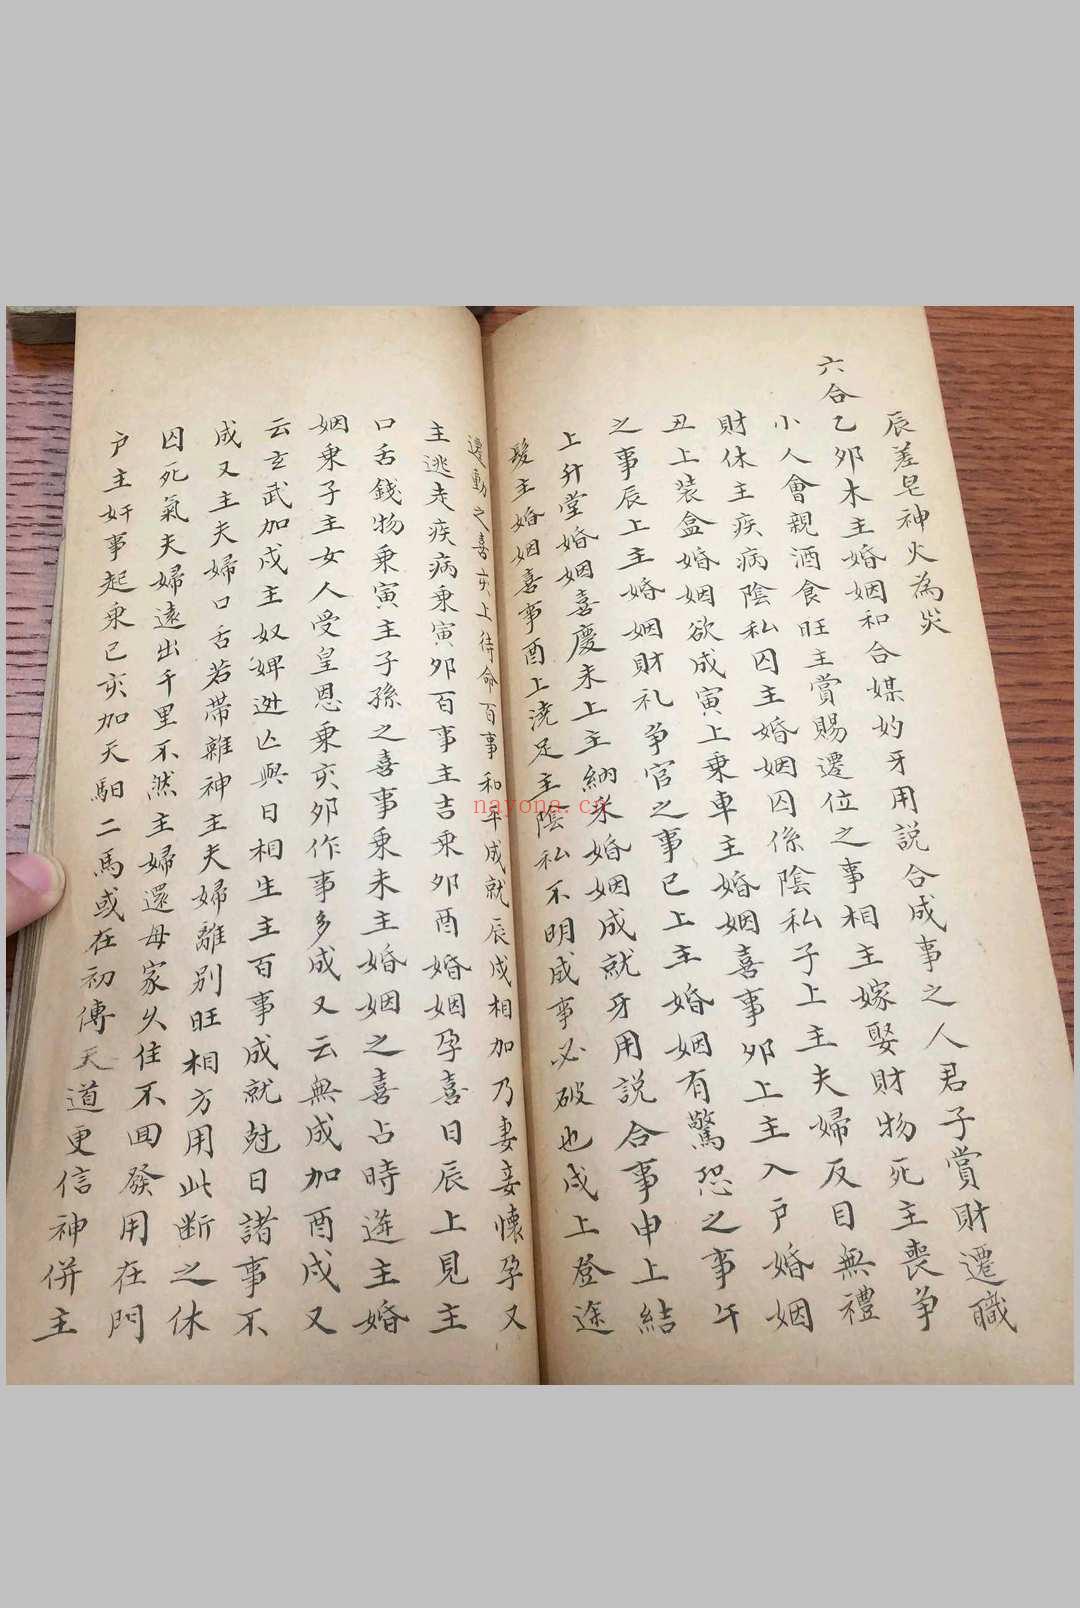 辰差皂神火為災
六合
乙夘木主婚姻和合媒妁牙用説合成事之人君子賞財遷職
小人會親酒食旺主賞賜遷位之事相主嫁娶財物死主喪争
財休主疾病陰私囚主婚姻囚係陰私子上主夫婦反目無禮
丑上装盒婚姻欲成寅上乗車主婚姻喜事夘上主入户婚姻
之事辰上主婚姻財礼争官之事巳上主婚姻有驚恐之事午
上升堂婚姻喜慶未上主納采婚姻成就牙用説合事申上結
髮主婚姻喜事酉上澆足主陰私不明成事必破也戌上登途
遷動之喜亥上待命百事和平成就辰戌相加乃妻妾懐孕又
主逃走疾病乗寅夘百事主吉乗夘酉婚姻孕喜日辰上見主
口舌錢物乗寅主子孫之喜事乗未主婚姻之喜占時遊主婚
姻乗子主女人受皇恩乗亥夘作事多成又云無成加酉戌又
云玄武加戌主奴婢逃亾與日相生主百事成就尅日諸事不
成又主夫婦口舌若帶離神主夫婦離别旺相方用此断之休
囚死氣夫婦遠出千里不然主婦還母家久住不回發用在門
户主奸事起乗巳亥加天馹二馬或在初傳天道更信神併主
nayona.cn